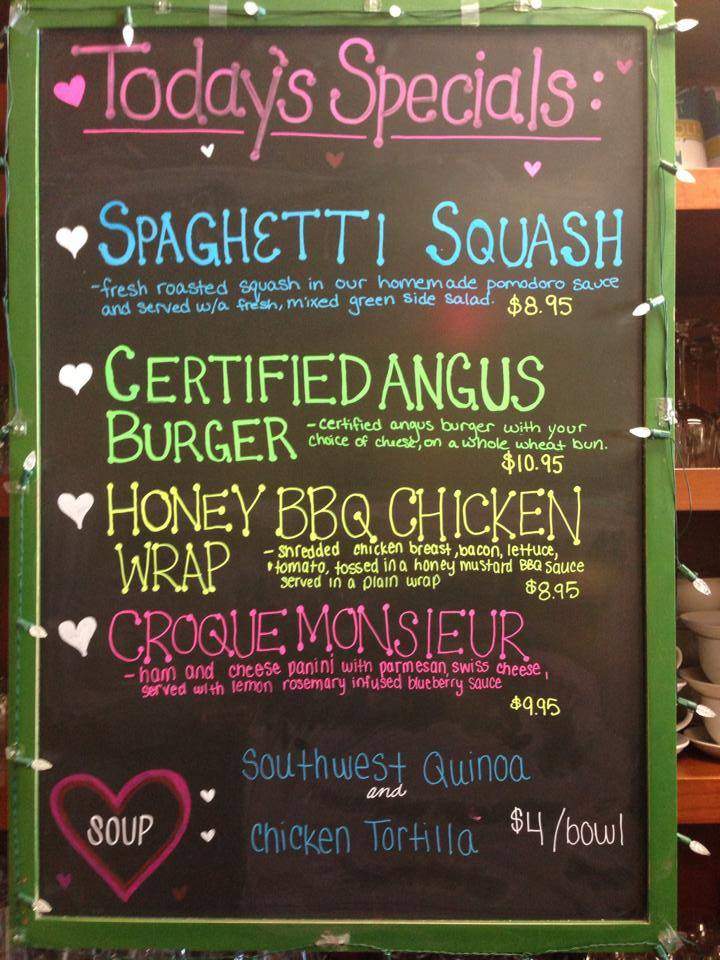 Today's Specials:
SPAGHETTI SQUASH
-fresh roasted squash in our homemade pomodoro sauce
and served w/a fresh, mixed green side salad. $8.95
CERTIFIED ANGUS
BURGER -certified angus burger with your
choice of cheese, on a whole wheat bun.
$10.95
HONEY BBQ CHICKEN
WRAP - shredded chicken breast, bacon, lettuce,
tomato, tossed in a honey mustard BBQ sauce
served in a plain wrap $8.95
CROQUE MONSIEUR
- ham and cheese panini with parmesan, swiss cheese,
served with lemon rosemary infused blueberry sauce
$9.95
SOUP
Southwest Quinoa
and
Chicken Tortilla $4/bowl